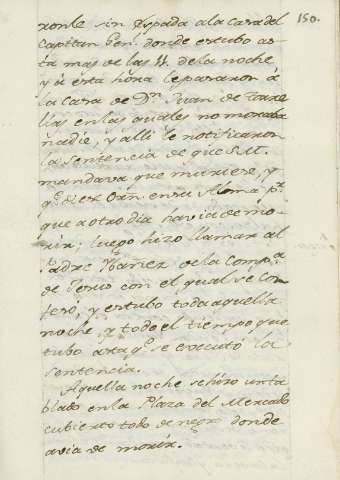 150.
ronle sin Espada a la Casa del
Capitan Gen. donde estubo as
ta mas de las 11. de la noche
y a esta hora le pasaron à
la Casa de Dn. Juan de
las en las quales no morava
nadie, y alli le notificaron
la Sentencia de que S.M.
mandava que muriese, y
en su Alma pr.
que a otro dia havia de mo-
rir; luego hizo llamar al
Padre Ybañez de la Comp.a
de Jesus con el qual se con
fesó, y estubo toda aquella
noche, y todo el tiempo que
tubo asta q.e se executó la
Sentencia.
Aquella noche se hizo un ta
blado en la Plaza del Mercado
cubierto todo de negro donde
avia de morir.